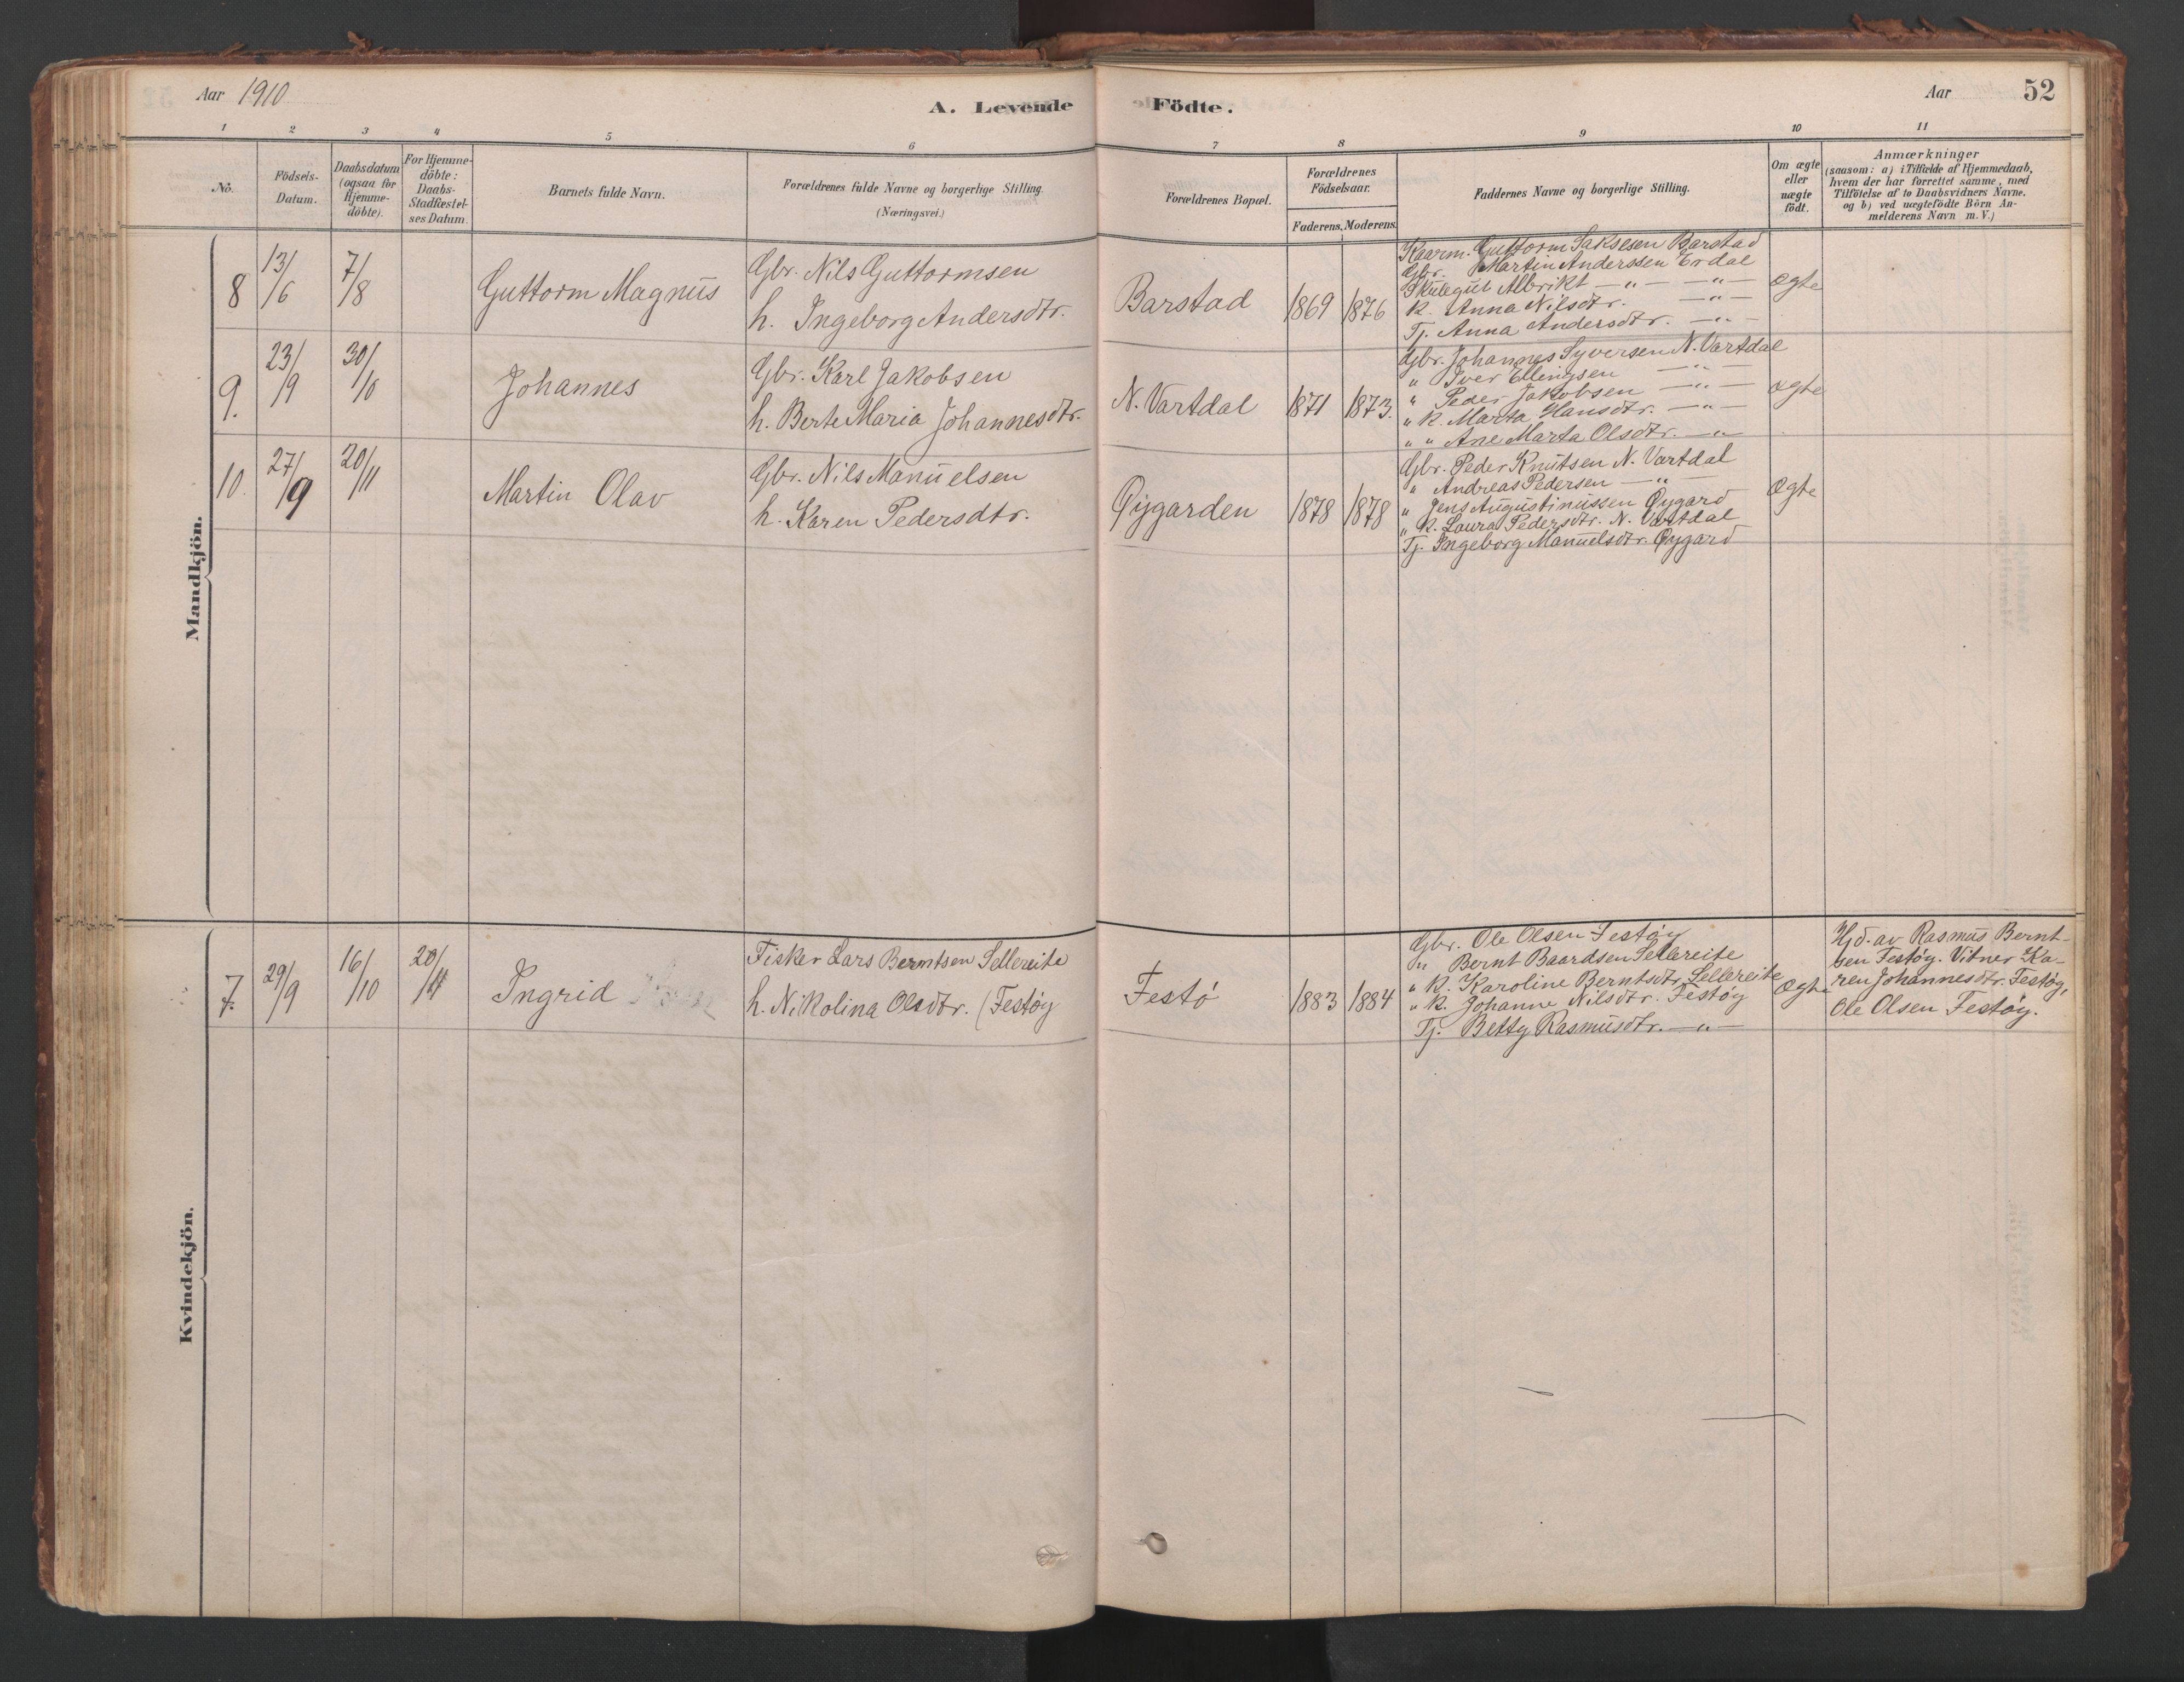 Aar 1910
A. Levende Födte.
Aar 52
1 2 3 4 5 6 7 8 9 10 11
No.
Födsels-
Datum.
Daabsdatum
(ogsaa for
Hjemme-
döbte).
For Hjemme-
döbte:
Daabs-
Stadfæstel-
ses Datum.
Barnets fulde Navn.
Forældrenes fulde Navne og borgerlige Stilling.
(Næringsvei.)
Forældrenes Bopæl.
Forældrenes
Födselsaar.
Faderens. Moderens.
Faddernes Navne og borgerlige Stilling.
Om ægte
eller
uægte
födt.
Anmærkninger
(saasom: a) i Tilfælde af Hjemmedaab,
hvem der har forrettet samme, med
Tilföielse af to Daabsvidners Navne.
og b) ved uægtefödte Börn An-
melderens Navn m. V.)
Mandkjön.
8
13/6
7/8
Guttorm Magnus
Gbr. Nils Guttormsen
h. Ingeborg Andersdtr.
Barstad
1869
1876
Kaarm. Guttorm Saksesen Barstad
Gbr. Martin Anderssen Erdal
Skulegut Albrikt — " — — " —
K. Anna Nilsdtr. — " —
Tj. Anna Andersdtr. — " —
Ægte
9.
23/9
30/10
Johannes
Gbr. Karl Jakobsen
h. Berte Maria Johannesdtr.
N. Vartdal
1871
1873.
Gbr. Johannes Syversen N. Vartdal
" Iver Ellingsen — " —
" Peder Jakobsen — " —
" K. Marta Hansdtr. — " —
" " Ane Marta Olsdtr. — "
Ægte
10.
27/9
20/11
Martin Olav
Gbr. Nils Manuelsen
h. Karen Pedersdtr.
Øygarden
1878
1878
Gbr. Peder Knutsen N. Vartdal
" Andreas Pedersen — " —
" Jens Augustinussen Øygard
" K. Laura Pedersdtr. N. Vartdal
Tj. Ingeborg Manuelsdtr. Øygard
Ægte
Kvindekjön.
7.
29/9
16/10
20/11
Ingrid
Fisker Lars Berntsen Sellereite
h. Nikolina Olsdtr. (Festøy
Festö
1883
1884
Gbr. Ole Olsen Festøy
" Bernt Baardsen Sellereite
" K. Karoline Berntsdtr. Sellereite
" K. Johanne Nilsdtr. Festøy
Tj. Betty Rasmusdtr. — " —
Ægte
Hjd. av Rasmus Bernt-
sen Festøy. Vitner Ka-
ren Johannesdtr. Festøy,
Ole Olsen Festøy.